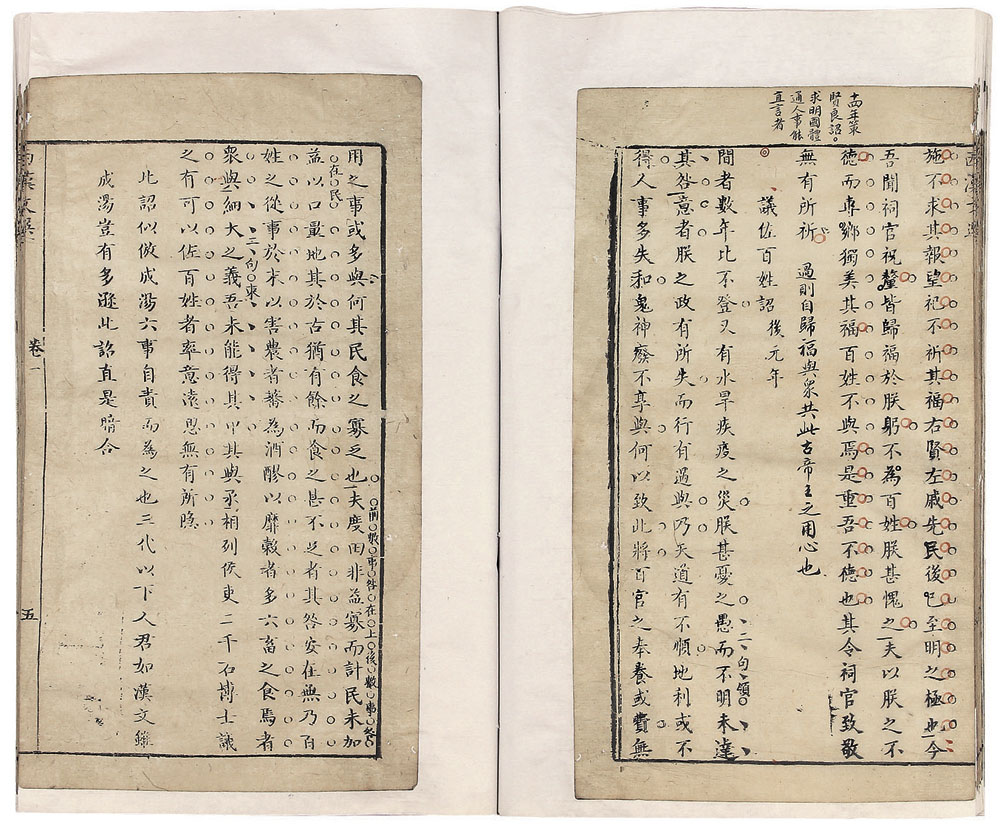 十四年策
賢良詔。
求明國體
通人事能
直言者
施不求其報望祀不祈其福右賢左戚先民後已至明之極也今
吾聞祠官祝釐皆歸福於朕躬不為百姓朕甚愧之夫以朕之不
德而專鄉獨美其福百姓不與焉是重吾不德也其令祠官致敬
無有所祈　過則自歸福與眾共此古帝王之用心也
議佐百姓詔　後元年
二句領
間者數年比不登又有水旱疾疫之災朕甚憂之愚而不明未達
其咎意者朕之政有所失而行有過與乃天道有不順地利或不
得人事多失和鬼神廢不享與何以致此將百官之奉養或費無
前數事咎在上後數事咎
用之事或多與何其民食之寡乏也夫度田非益寡而計民未加
在民
益以口量地其於古猶有餘而食之甚不足者其咎安在無乃百
姓之從事於末以害農者蕃為酒醪以靡穀者多六畜之食焉者
二句束
眾與細大之義吾未能得其中其與丞相列侯吏二千石博士議
之有可以佐百姓者率意遠思無有所隱
此詔似倣成湯六事自責而為之也三代以下人君如漢文雖
成湯豈有多遜此詔直是暗合
卷一
五